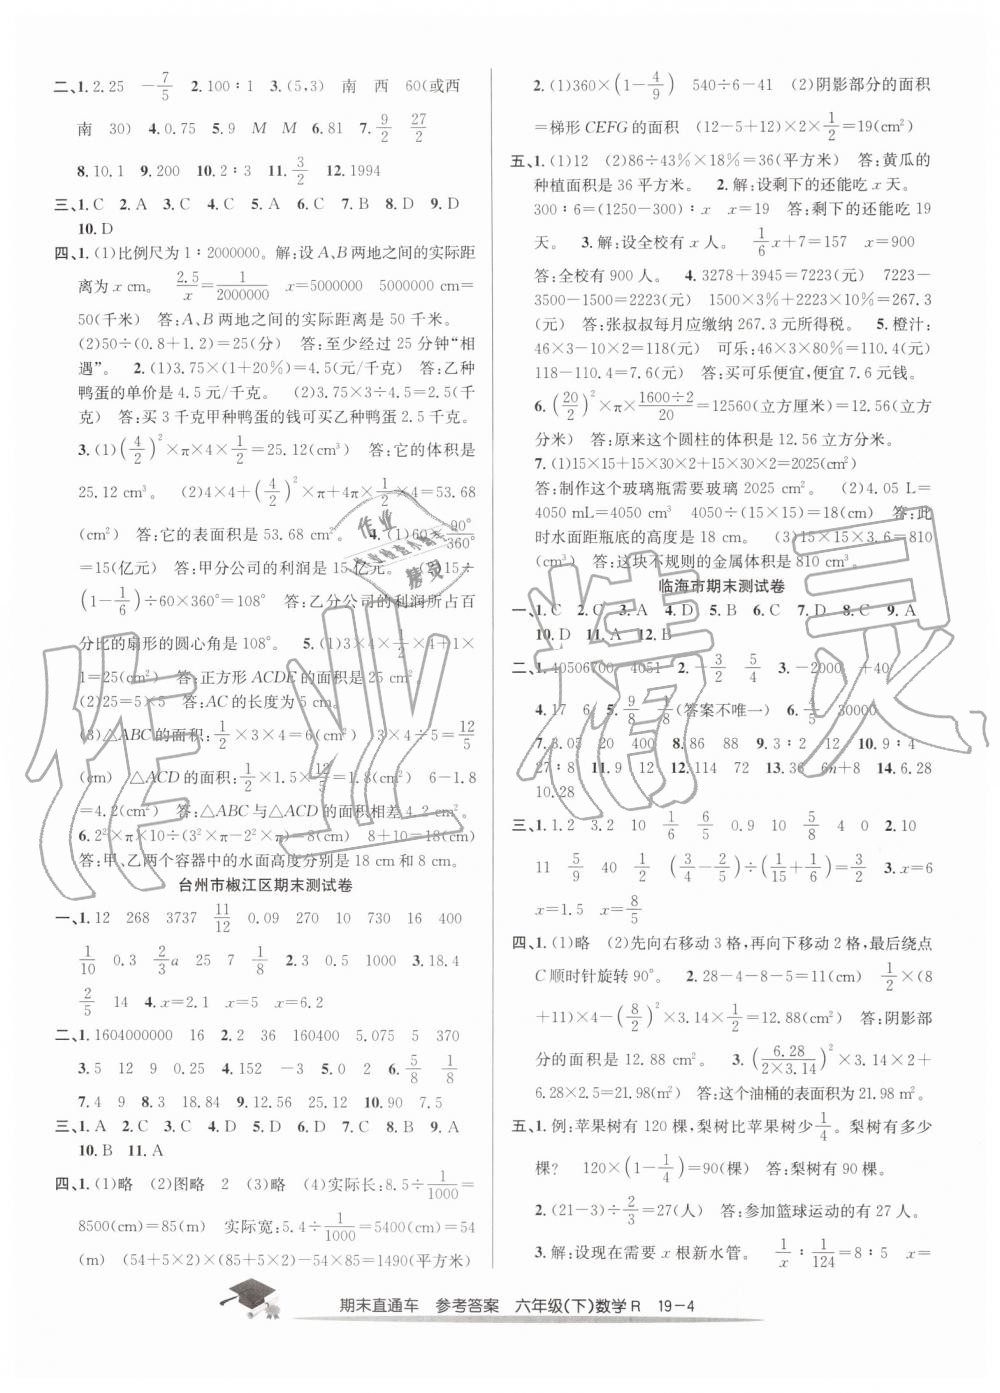 二、1. 2.25　－7/5　2. 100∶1　3. (5,3)　南　西　60(或西
南　30)　4. 0.75　5. 9　M　M　6. 81　7. 9/2　27/2
8. 10.1　9. 200　10. 2∶3　11. 3/2　12. 1994
三、1. C　2. A　3. C　4. C　5. A　6. C　7. B　8. D　9. D
10. D
四、1. (1)比例尺为1∶2000000。解:设A、B两地之间的实际距
离为x cm。　2.5/x=1/2000000　x=5000000　5000000 cm=
50(千米)　答:A、B两地之间的实际距离是50千米。
(2)50÷(0.8+1.2)=25(分)　答:至少经过25分钟“相
遇”。　2. (1)3.75×(1+20%)=4.5(元/千克)　答:乙种
鸭蛋的单价是4.5元/千克。　(2)3.75×3÷4.5=2.5(千
克)　答:买3千克甲种鸭蛋的钱可买乙种鸭蛋2.5千克。
3. (1)(4/2)²×π×4×1/2=25.12(cm³)　答:它的体积是
25.12 cm³。　(2)4×4+(4/2)²×π+4π×1/2×4=53.68
(cm²)　答:它的表面积是53.68 cm²。　4. (1)60×90°/360°
=15(亿元)　答:甲分公司的利润是15亿元。　(2)15÷
(1－1/6)÷60×360°=108°　答:乙分公司的利润所占百
分比的扇形的圆心角是108°。　5. (1)3×4×1/2×4+1×
1=25(cm²)　答:正方形ACDE的面积是25 cm²。
(2)25=5×5　答:AC的长度为5 cm。
(3)△ABC的面积:1/2×3×4=6(cm²)　3×4÷5=12/5
(cm)　△ACD的面积:1/2×1.5×12/5=1.8(cm²)　6－1.8
=4.2(cm²)　答:△ABC与△ACD的面积相差4.2 cm²。
6. 2²×π×10÷(3²×π－2²×π)=8(cm)　8+10=18(cm)
答:甲、乙两个容器中的水面高度分别是18 cm和8 cm。
台州市椒江区期末测试卷
一、1. 12　268　3737　11/12　0.09　270　10　730　16　400
1/10　0.3　2/3a　25　7　1/8　2. 0.3　0.5　1000　3. 18.4
2/5　14　4. x=2.1　x=5　x=6.2
二、1. 1604000000　16　2. 2　36　160400　5.075　5　370
3. 5　12　9　0.25　4. 152　－3　5. 0　2　6. 5/8　1/8
7. 4　9　8. 3　18.84　9. 12.56　25.12　10. 90　7.5
三、1. A　2. C　3. C　4. D　5. B　6. D　7. C　8. B　9. A
10. B　11. A
四、1. (1)略　(2)图略　2　(3)略　(4)实际长:8.5÷1/1000=
8500(cm)=85(m)　实际宽:5.4÷1/1000=5400(cm)=54
(m)　(54+5×2)×(85+5×2)－54×85=1490(平方米)
2. (1)360×(1－4/9)　540÷6－41　(2)阴影部分的面积
=梯形CEFG的面积　(12－5+12)×2×1/2=19(cm²)
五、1. (1)12　(2)86÷43%×18%=36(平方米)　答:黄瓜的
种植面积是36平方米。　2. 解:设剩下的还能吃x天。
300∶6=(1250－300)∶x　x=19　答:剩下的还能吃19
天。　3. 解:设全校有x人。　1/6x+7=157　x=900
答:全校有900人。　4. 3278+3945=7223(元)　7223－
3500－1500=2223(元)　1500×3%+2223×10%=267.3
(元)　答:张叔叔每月应缴纳267.3元所得税。　5. 橙汁:
46×3－10×2=118(元)　可乐:46×3×80%=110.4(元)
118－110.4=7.6(元)　答:买可乐便宜,便宜7.6元钱。
6. (20/2)²×π×1600÷2/20=12560(立方厘米)=12.56(立方
分米)　答:原来这个圆柱的体积是12.56立方分米。
7. (1)15×15+15×30×2+15×30×2=2025(cm²)
答:制作这个玻璃瓶需要玻璃2025 cm²。　(2)4.05 L=
4050 mL=4050 cm³　4050÷(15×15)=18(cm)　答:此
时水面距瓶底的高度是18 cm。　(3)15×15×3.6=810
(cm³)　答:这块不规则的金属体积是810 cm³。
临海市期末测试卷
一、1. C　2. C　3. A　4. D　5. B　6. C　7. D　8. C　9. A
10. D　11. A　12. B
二、1. 40506700　4051　2. －3/2　5/4　3. －2000　+40
4. 17　6　5. 9/8　1/8(答案不唯一)　6. 4/5　30000
7. 3.05　20　400　8. 86　88　9. 3∶2　12　10. 9∶4
27∶8　11. 9　12　12. 114　72　13. 36　6n+8　14. 6.28
10.28
三、1. 1.2　3.2　10　1/6　6/5　0.9　10　5/8　4　0　2. 10
11　5/9　40　1/2　4/5　1/12　4/5　2/3　3. x=6
x=1.5　x=8/5
四、1. (1)略　(2)先向右移动3格,再向下移动2格,最后绕点
C顺时针旋转90°。　2. 28－4－8－5=11(cm)　1/2×(8
+11)×4－(8/2)²×3.14×1/2=12.88(cm²)　答:阴影部
分的面积是12.88 cm²。　3. (6.28/2×3.14)²×3.14×2+
6.28×2.5=21.98(m²)　答:这个油桶的表面积为21.98 m²。
五、1. 例:苹果树有120棵,梨树比苹果树少1/4。梨树有多少
棵?　120×(1－1/4)=90(棵)　答:梨树有90棵。
2. (21－3)÷2/3=27(人)　答:参加篮球运动的有27人。
3. 解:设现在需要x根新水管。　1/x∶1/124=8∶5　x=
期末直通车　参考答案　六年级(下)数学R　19－4
作业精灵